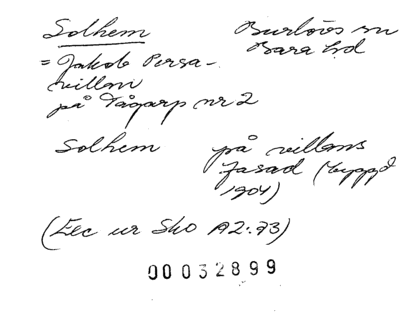 Solhem
Burlövs sn
Bara hd
= Jakob Persa-
villan
på Tågarp nr 2
Solhem
på villans
fasad (byggd
1904)
(Exc ur Sko A2:73)
00032899